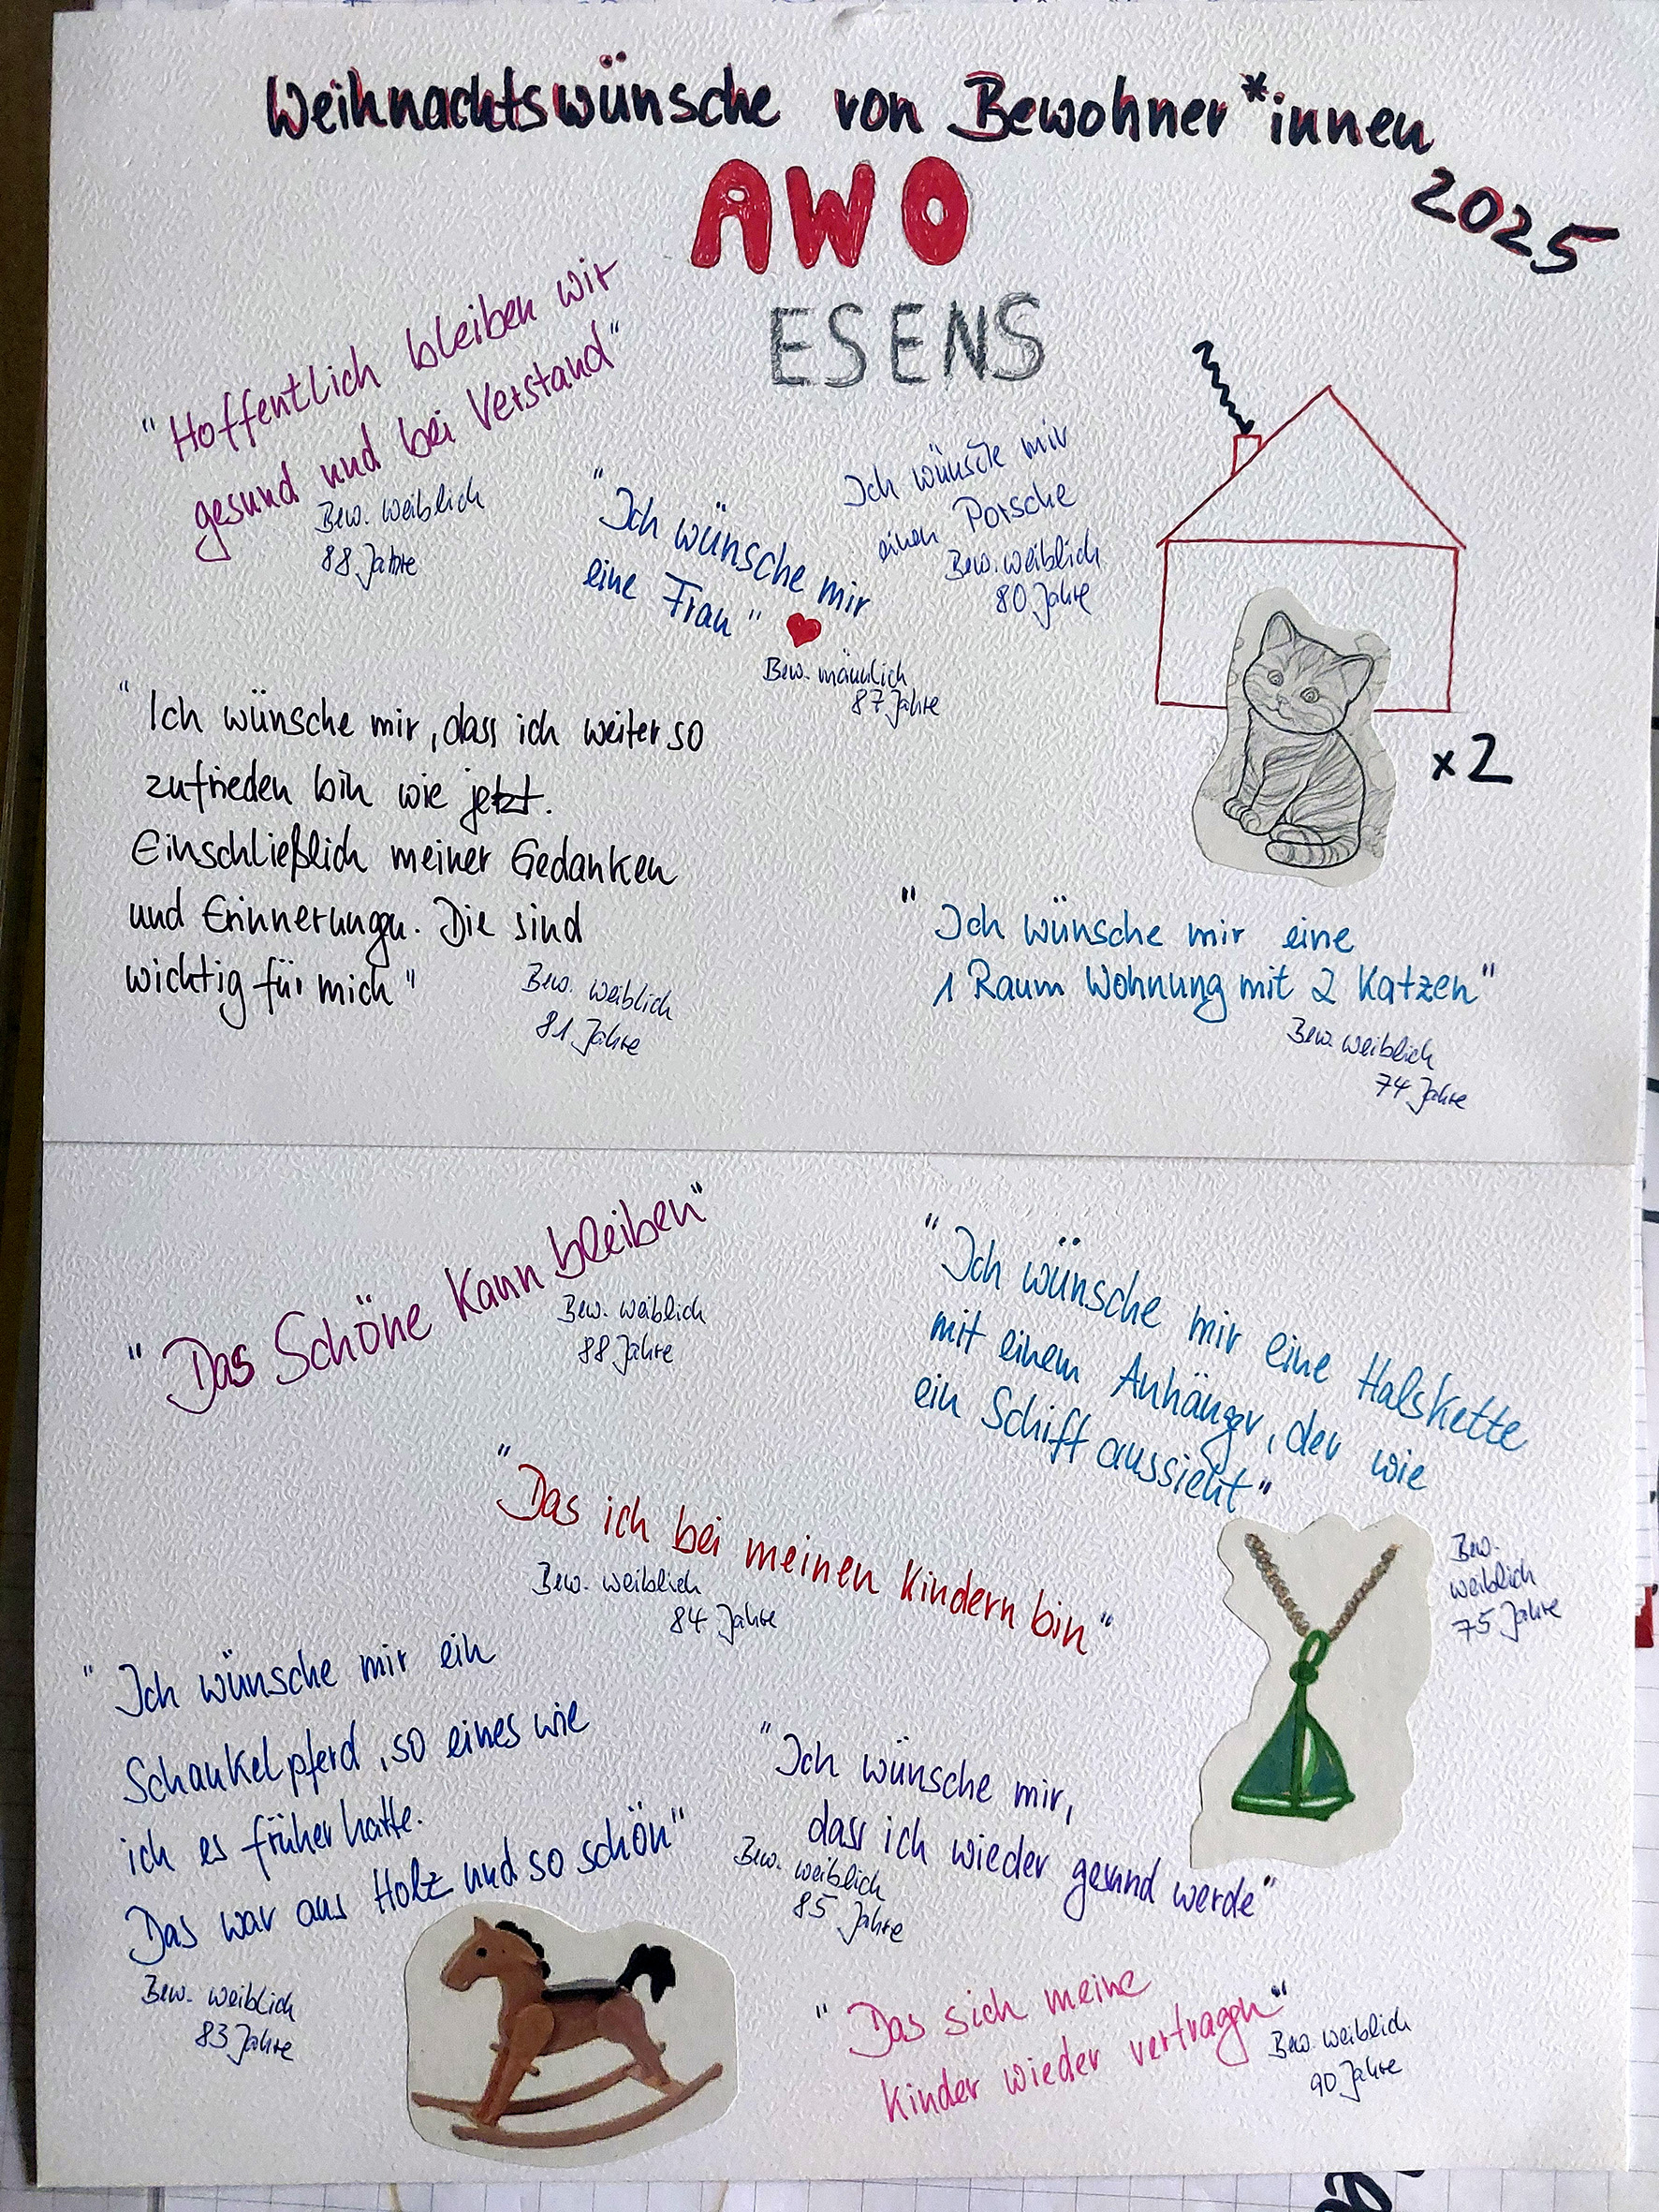 Weihnachtswünsche von Bewohner*innen
2025
AWO
ESENS
"Hoffentlich bleiben wir
gesund und bei Verstand"
Bew. weiblich
88 Jahre
"Ich wünsche mir
eine Frau"
Bew. männlich
87 Jahre
Ich wünsche mir
einen Porsche
Bew. weiblich
80 Jahre
x2
"Ich wünsche mir, dass ich weiter so
zufrieden bin wie jetzt.
Einschließlich meiner Gedanken
und Erinnerungen. Die sind
wichtig für mich"
Bew. weiblich
81 Jahre
"Ich wünsche mir eine
1 Raum Wohnung mit 2 Katzen"
Bew. weiblich
74 Jahre
"Das Schöne kann bleiben"
Bew. weiblich
88 Jahre
"Ich wünsche mir eine Halskette
mit einem Anhänger, der wie
ein Schiff aussieht"
Bew.
weiblich
75 Jahre
"Das ich bei meinen Kindern bin"
Bew. weiblich
84 Jahre
"Ich wünsche mir ein
Schaukelpferd, so eines wie
ich es früher hatte.
Das war aus Holz und so schön"
Bew. weiblich
83 Jahre
"Ich wünsche mir,
dass ich wieder gesund werde"
Bew. weiblich
85 Jahre
"Das sich meine
Kinder wieder vertragen"
Bew. weiblich
90 Jahre